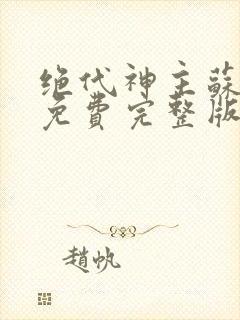 绝代神主蘇
免費完整版
趙帆